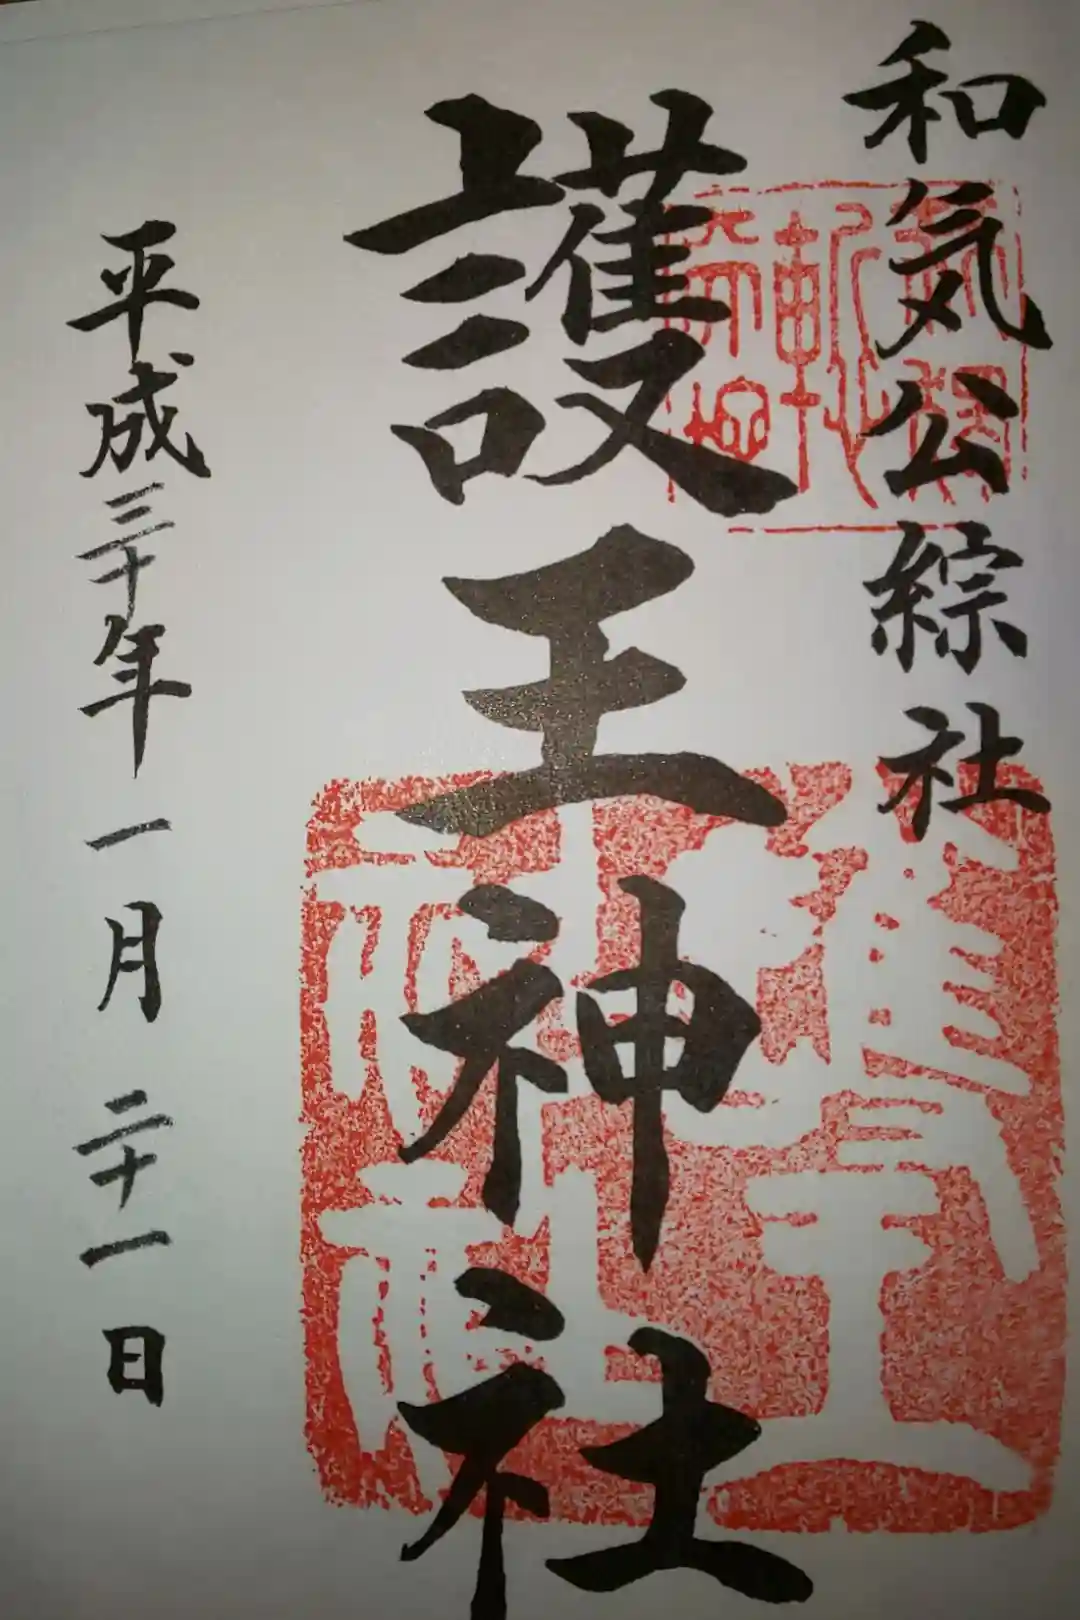 和気公綜社
護王神社
平成三十年一月二十一日
護王神社